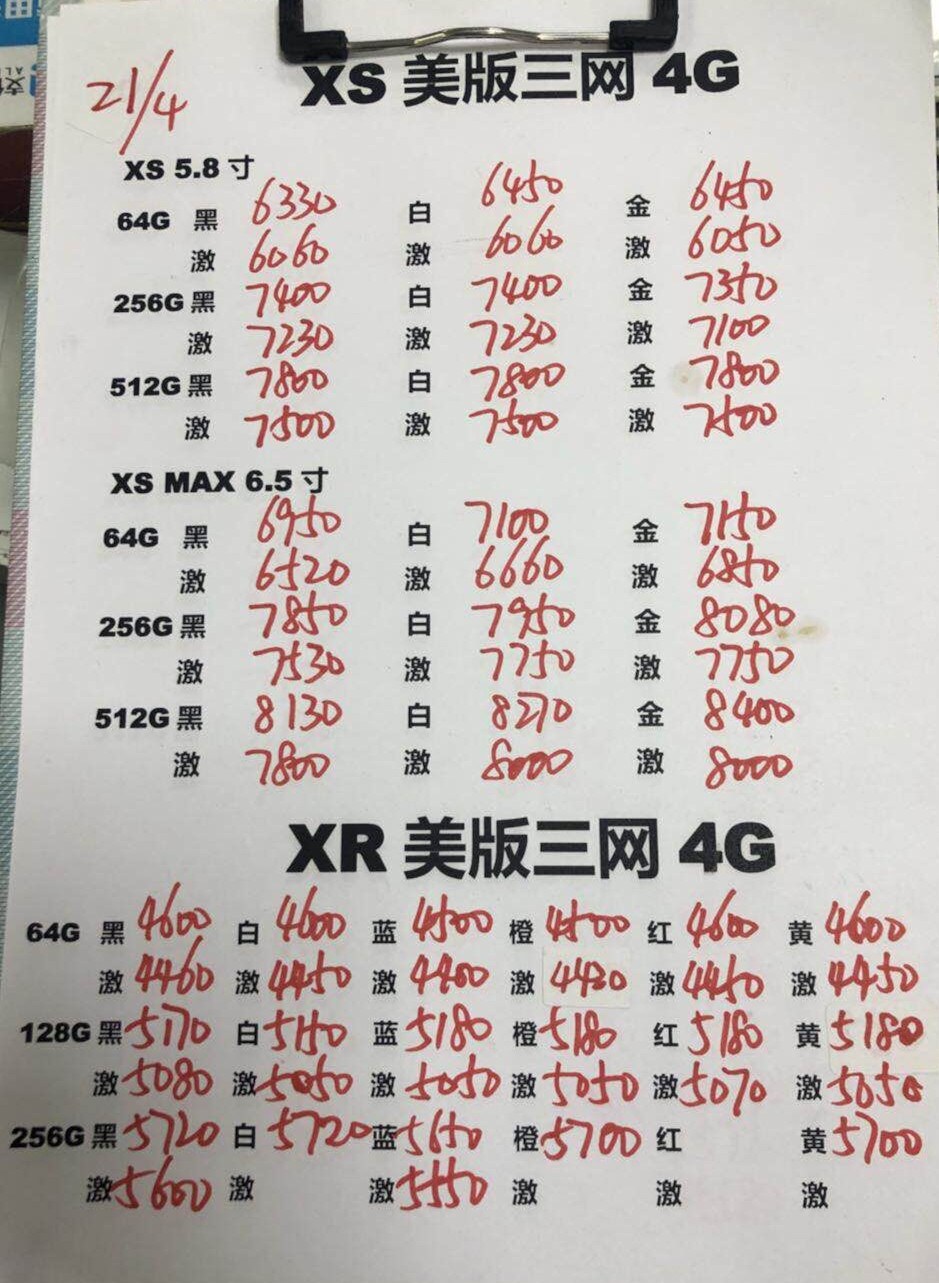 21/4
XS 美版三网 4G
XS 5.8 寸
64G 黑 6330 白 6450 金 6450
激 6060 激 6060 激 6050
256G 黑 7400 白 7400 金 7350
激 7230 激 7230 激 7100
512G 黑 7800 白 7800 金 7800
激 7500 激 7500 激 7500
XS MAX 6.5 寸
64G 黑 6950 白 7100 金 7150
激 6520 激 6660 激 6850
256G 黑 7850 白 7950 金 8080
激 7530 激 7750 激 7750
512G 黑 8130 白 8270 金 8400
激 7800 激 8000 激 8000
XR 美版三网 4G
64G 黑 4600 白 4600 蓝 4500 橙 4500 红 4600 黄 4600
激 4460 激 4450 激 4400 激 4420 激 4450 激 4450
128G 黑 5170 白 5150 蓝 5180 橙 5180 红 5180 黄 5180
激 5080 激 5050 激 5050 激 5050 激 5070 激 5050
256G 黑 5720 白 5720 蓝 5650 橙 5700 红 黄 5700
激 5600 激 激 5550 激 激 激